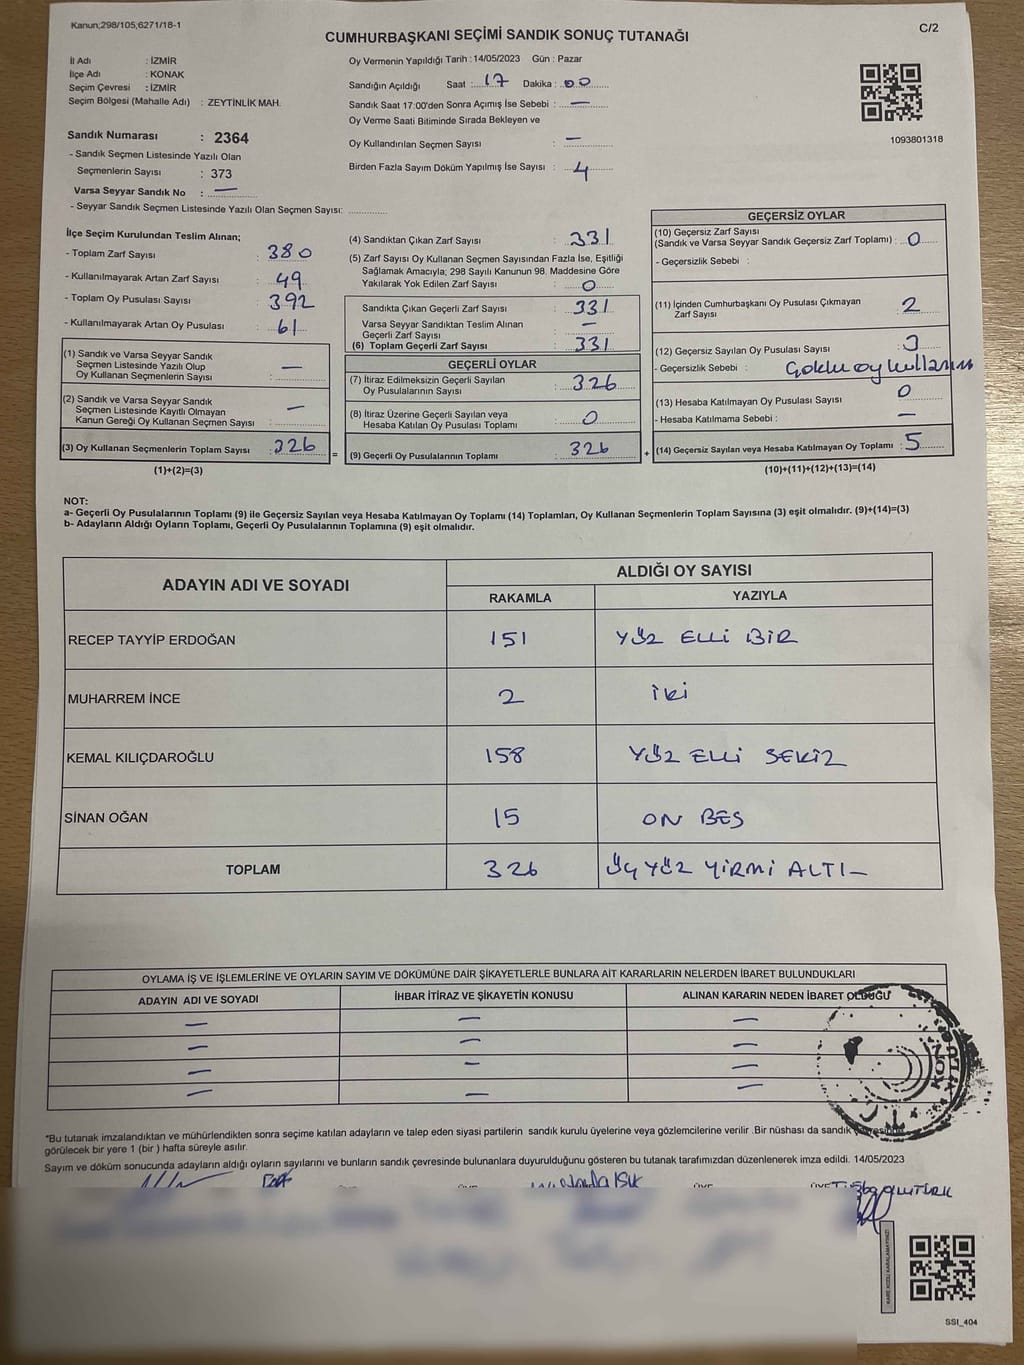 Kanun;298/105;6271/18-1
C/2
CUMHURBAŞKANI SEÇİMİ SANDIK SONUÇ TUTANAĞI
İl Adı : İZMİR
İlçe Adı : KONAK
Seçim Çevresi : İZMİR
Seçim Bölgesi (Mahalle Adı) : ZEYTİNLİK MAH.
Sandık Numarası : 2364
- Sandık Seçmen Listesinde Yazılı Olan
Seçmenlerin Sayısı : 373
Varsa Seyyar Sandık No : —
- Seyyar Sandık Seçmen Listesinde Yazılı Olan Seçmen Sayısı:
Oy Vermenin Yapıldığı Tarih : 14/05/2023 Gün : Pazar
Sandığın Açıldığı Saat : 17 Dakika : 00
Sandık Saat 17:00'den Sonra Açımış İse Sebebi : —
Oy Verme Saati Bitiminde Sırada Bekleyen ve
Oy Kullandırılan Seçmen Sayısı : —
Birden Fazla Sayım Döküm Yapılmış İse Sayısı : 4
1093801318
İlçe Seçim Kurulundan Teslim Alınan;
- Toplam Zarf Sayısı : 380
- Kullanılmayarak Artan Zarf Sayısı : 49
- Toplam Oy Pusulası Sayısı : 392
- Kullanılmayarak Artan Oy Pusulası : 61
(1) Sandık ve Varsa Seyyar Sandık
Seçmen Listesinde Yazılı Olup
Oy Kullanan Seçmenlerin Sayısı : —
(2) Sandık ve Varsa Seyyar Sandık
Seçmen Listesinde Kayıtlı Olmayan
Kanun Gereği Oy Kullanan Seçmen Sayısı : —
(3) Oy Kullanan Seçmenlerin Toplam Sayısı : 226 =
(1)+(2)=(3)
(4) Sandıktan Çıkan Zarf Sayısı : 331
(5) Zarf Sayısı Oy Kullanan Seçmen Sayısından Fazla İse, Eşitliği
Sağlamak Amacıyla; 298 Sayılı Kanunun 98. Maddesine Göre
Yakılarak Yok Edilen Zarf Sayısı : 0
Sandıkta Çıkan Geçerli Zarf Sayısı : 331
Varsa Seyyar Sandıktan Teslim Alınan
Geçerli Zarf Sayısı : —
(6) Toplam Geçerli Zarf Sayısı : 331
GEÇERLİ OYLAR
(7) İtiraz Edilmeksizin Geçerli Sayılan
Oy Pusulalarının Sayısı : 326
(8) İtiraz Üzerine Geçerli Sayılan veya
Hesaba Katılan Oy Pusulası Toplamı : 0
(9) Geçerli Oy Pusulalarının Toplamı : 326 +
GEÇERSİZ OYLAR
(10) Geçersiz Zarf Sayısı
(Sandık ve Varsa Seyyar Sandık Geçersiz Zarf Toplamı) : 0
- Geçersizlik Sebebi :
(11) İçinden Cumhurbaşkanı Oy Pusulası Çıkmayan
Zarf Sayısı : 2
(12) Geçersiz Sayılan Oy Pusulası Sayısı : 3
- Geçersizlik Sebebi : Çoklu oy kullanım
(13) Hesaba Katılmayan Oy Pusulası Sayısı : 0
- Hesaba Katılmama Sebebi : —
(14) Geçersiz Sayılan veya Hesaba Katılmayan Oy Toplamı : 5
(10)+(11)+(12)+(13)=(14)
NOT:
a- Geçerli Oy Pusulalarının Toplamı (9) ile Geçersiz Sayılan veya Hesaba Katılmayan Oy Toplamı (14) Toplamları, Oy Kullanan Seçmenlerin Toplam Sayısına (3) eşit olmalıdır. (9)+(14)=(3)
b- Adayların Aldığı Oyların Toplamı, Geçerli Oy Pusulalarının Toplamına (9) eşit olmalıdır.
ADAYIN ADI VE SOYADI
ALDIĞI OY SAYISI
RAKAMLA YAZIYLA
RECEP TAYYİP ERDOĞAN 151 YÜZ ELLİ BİR
MUHARREM İNCE 2 İKİ
KEMAL KILIÇDAROĞLU 158 YÜZ ELLİ SEKİZ
SİNAN OĞAN 15 ON BEŞ
TOPLAM 326 ÜÇ YÜZ YİRMİ ALTI—
OYLAMA İŞ VE İŞLEMLERİNE VE OYLARIN SAYIM VE DÖKÜMÜNE DAİR ŞİKAYETLERLE BUNLARA AİT KARARLARIN NELERDEN İBARET BULUNDUKLARI
ADAYIN ADI VE SOYADI İHBAR İTİRAZ VE ŞİKAYETİN KONUSU ALINAN KARARIN NEDEN İBARET OLDUĞU
— — —
— — —
— — —
— — —
*Bu tutanak imzalandıktan ve mühürlendikten sonra seçime katılan adayların ve talep eden siyasi partilerin sandık kurulu üyelerine veya gözlemcilerine verilir .Bir nüshası da sandık çevresinde
görülecek bir yere 1 (bir ) hafta süreyle asılır.
Sayım ve döküm sonucunda adayların aldığı oyların sayılarını ve bunların sandık çevresinde bulunanlara duyurulduğunu gösteren bu tutanak tarafımızdan düzenlenerek imza edildi. 14/05/2023
KARE KODU KARALAMAYINIZ!
SSI_404